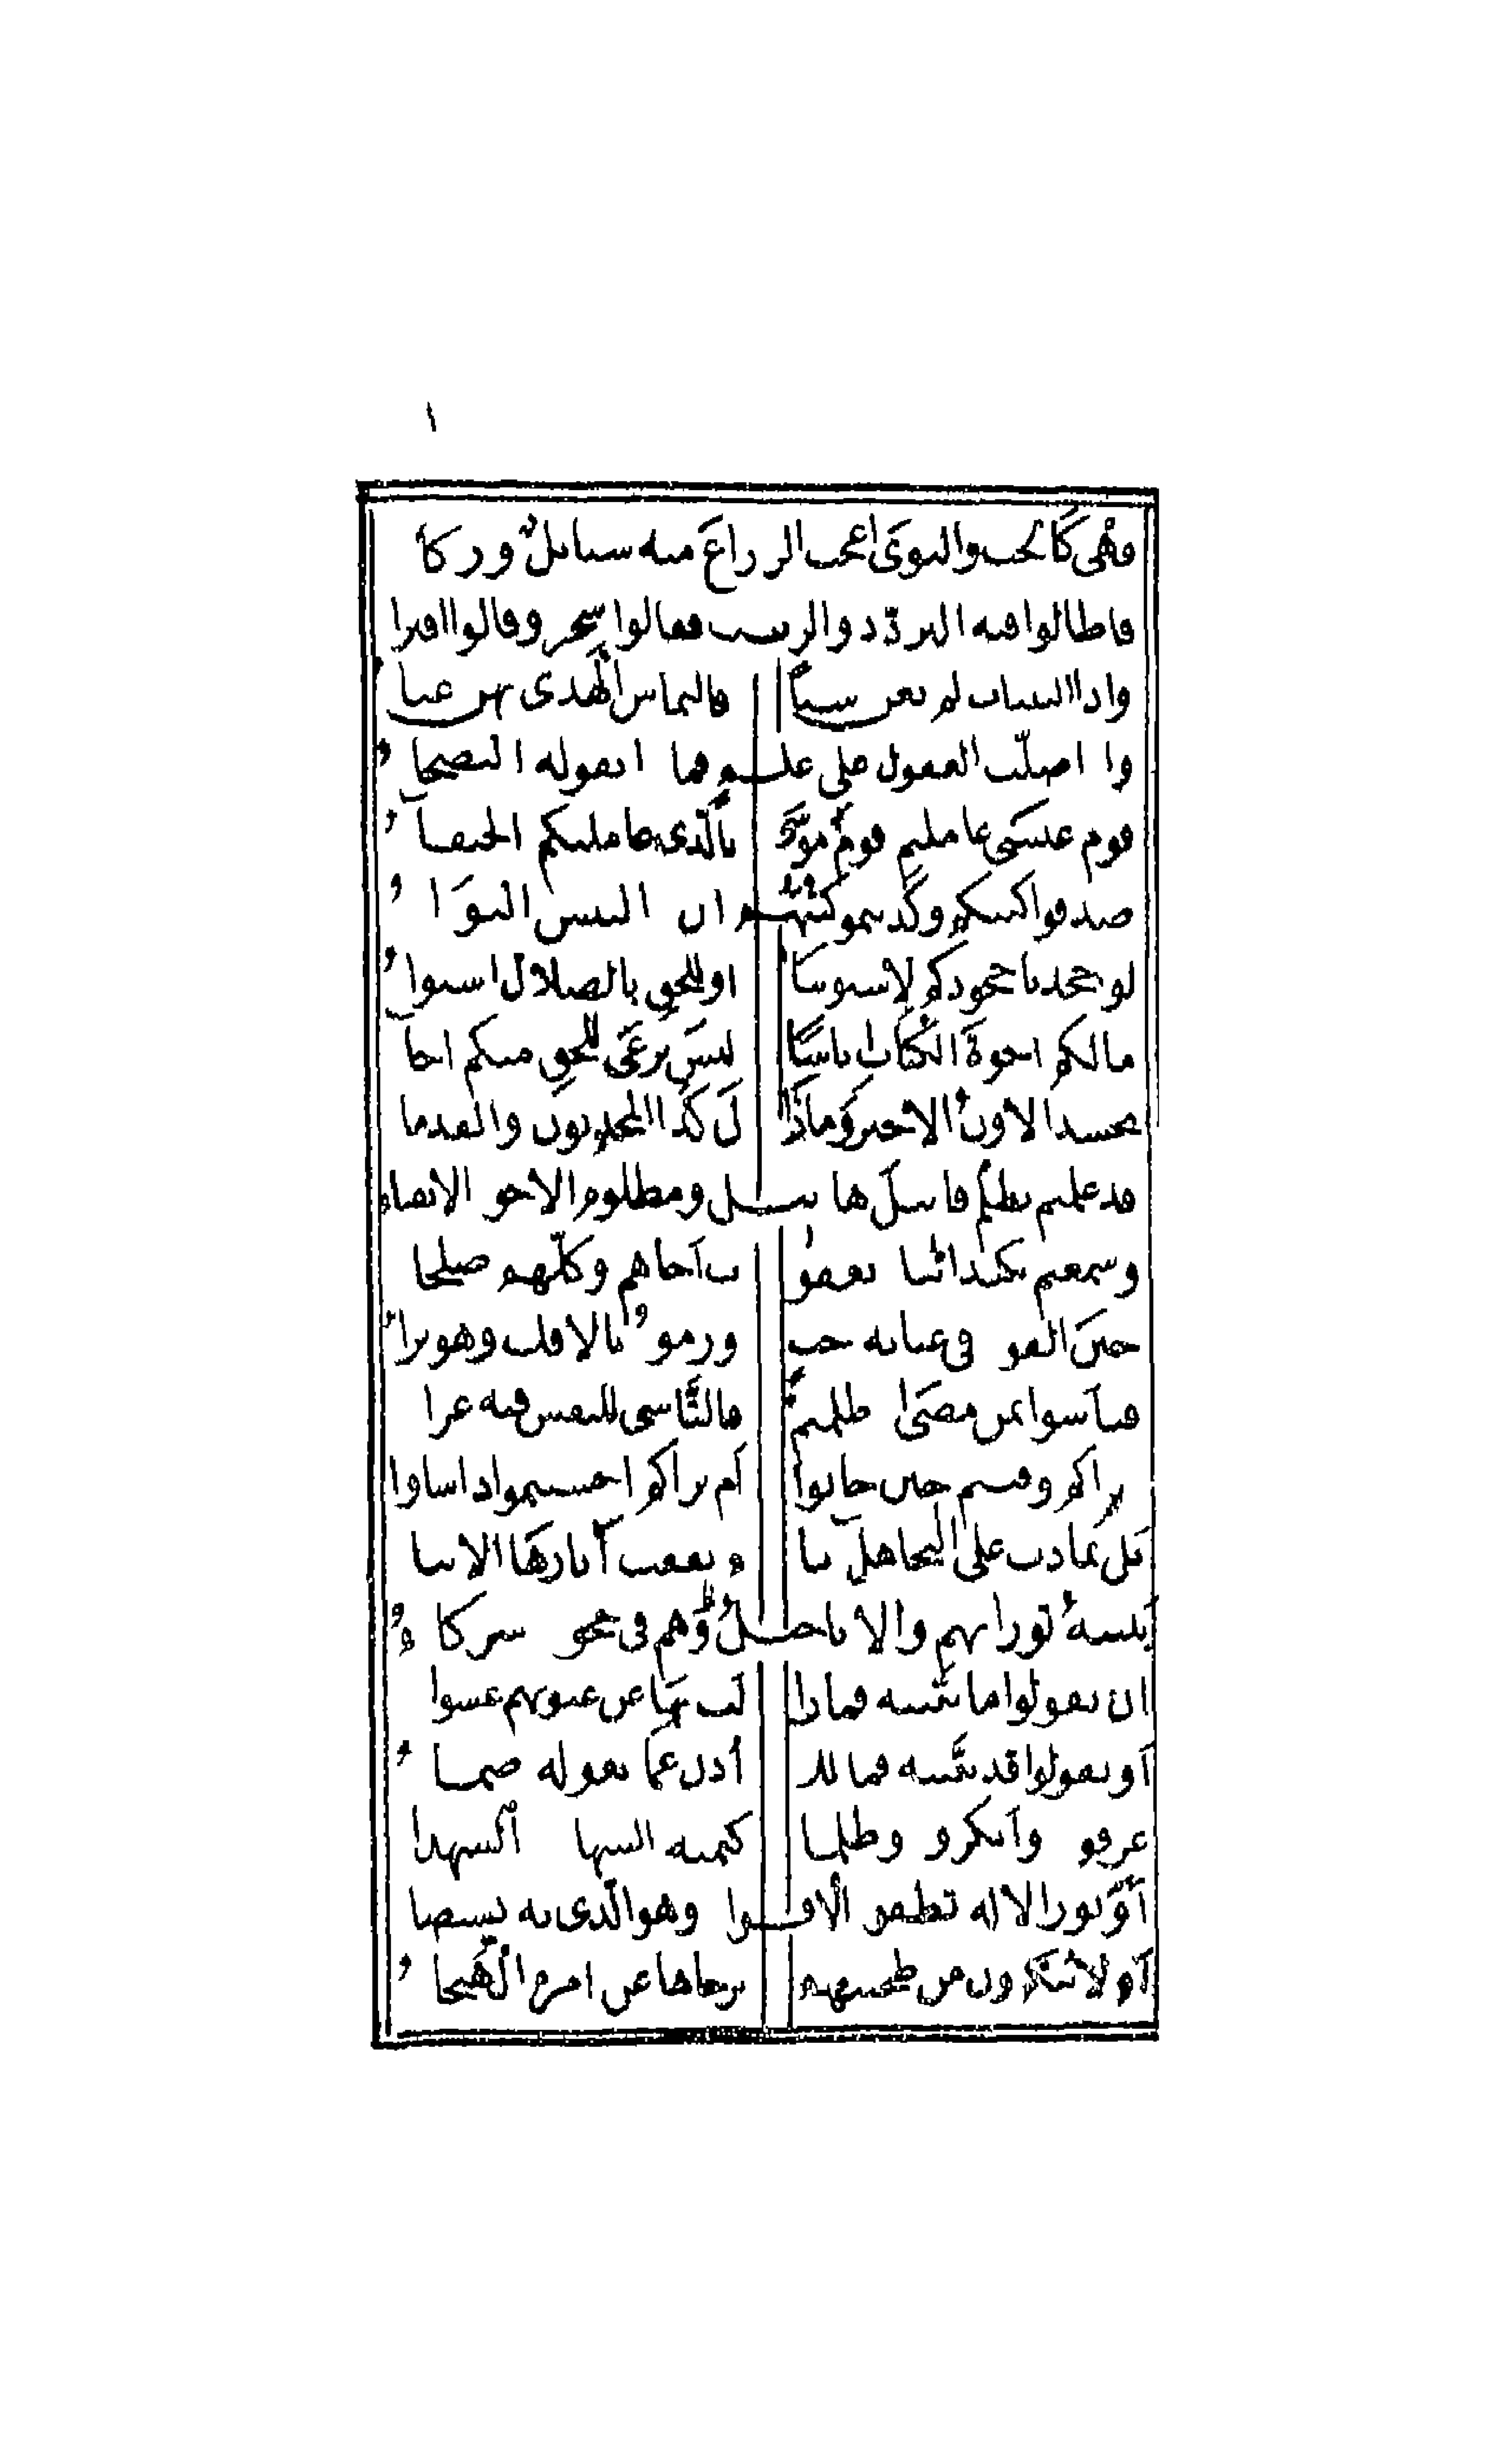 ١
فهى كالحب والنوى اعجب الزراع منه سنابل وزكا
فاطالوا فيه التردد والريب فقالوا سحر وقالوا افترا
واذا البينات لم تغن شيا فالتماس الهدى بهن عنا
واا ضلت العقول على علم فما ا تقوله النصحا
قوم عيسى عاملتم قوم موسى بالذى عاملتكم الحنفا
صدقوا كتبكم وكذبتمو كتبهم ان لبئس البوا
لو جحدنا جحودكم لاستوينا او للحق بالضلال استوا
مالكم اخوة الكتاب اناسا ليس يرعى للحق منكم اخا
يحسد الاول الاخير وماذا ل كذا المحدثون والقدما
قد علمتم بظلم قابيل هابيل ومظلوم الاخو الاتقيا
وسمعتم بكيد ابنا يعقو ب اخاهم وكلهم صلحا
حين القو فى غيابة جب ورمو بالافك وهو برا
فتاسوا بمن مضى ا ظلمتم فالتاسى للنفس فيه عزا
اتراكم وفيتم حين خانوا ام تراكم احسنتموا اذ اساوا
بل تمادت على التجاهل ابا ء تقفت آثارها الابنا
بينته توراتهم والاناجيل وهم فى جحو شركا
ان يقولوا ما بينته فما زا لت بها عن عيونهم غشوا
او يقولوا قد بينته فما لل أذن عما تقوله صما
عرفو وانكرو وظلما كتمته الشها الشهدا
أو نور الاله تطفئ الافوا وهو الذى به يستضا
أو لا تنكرون من طحنتهم برحاها عن امر الهيجا